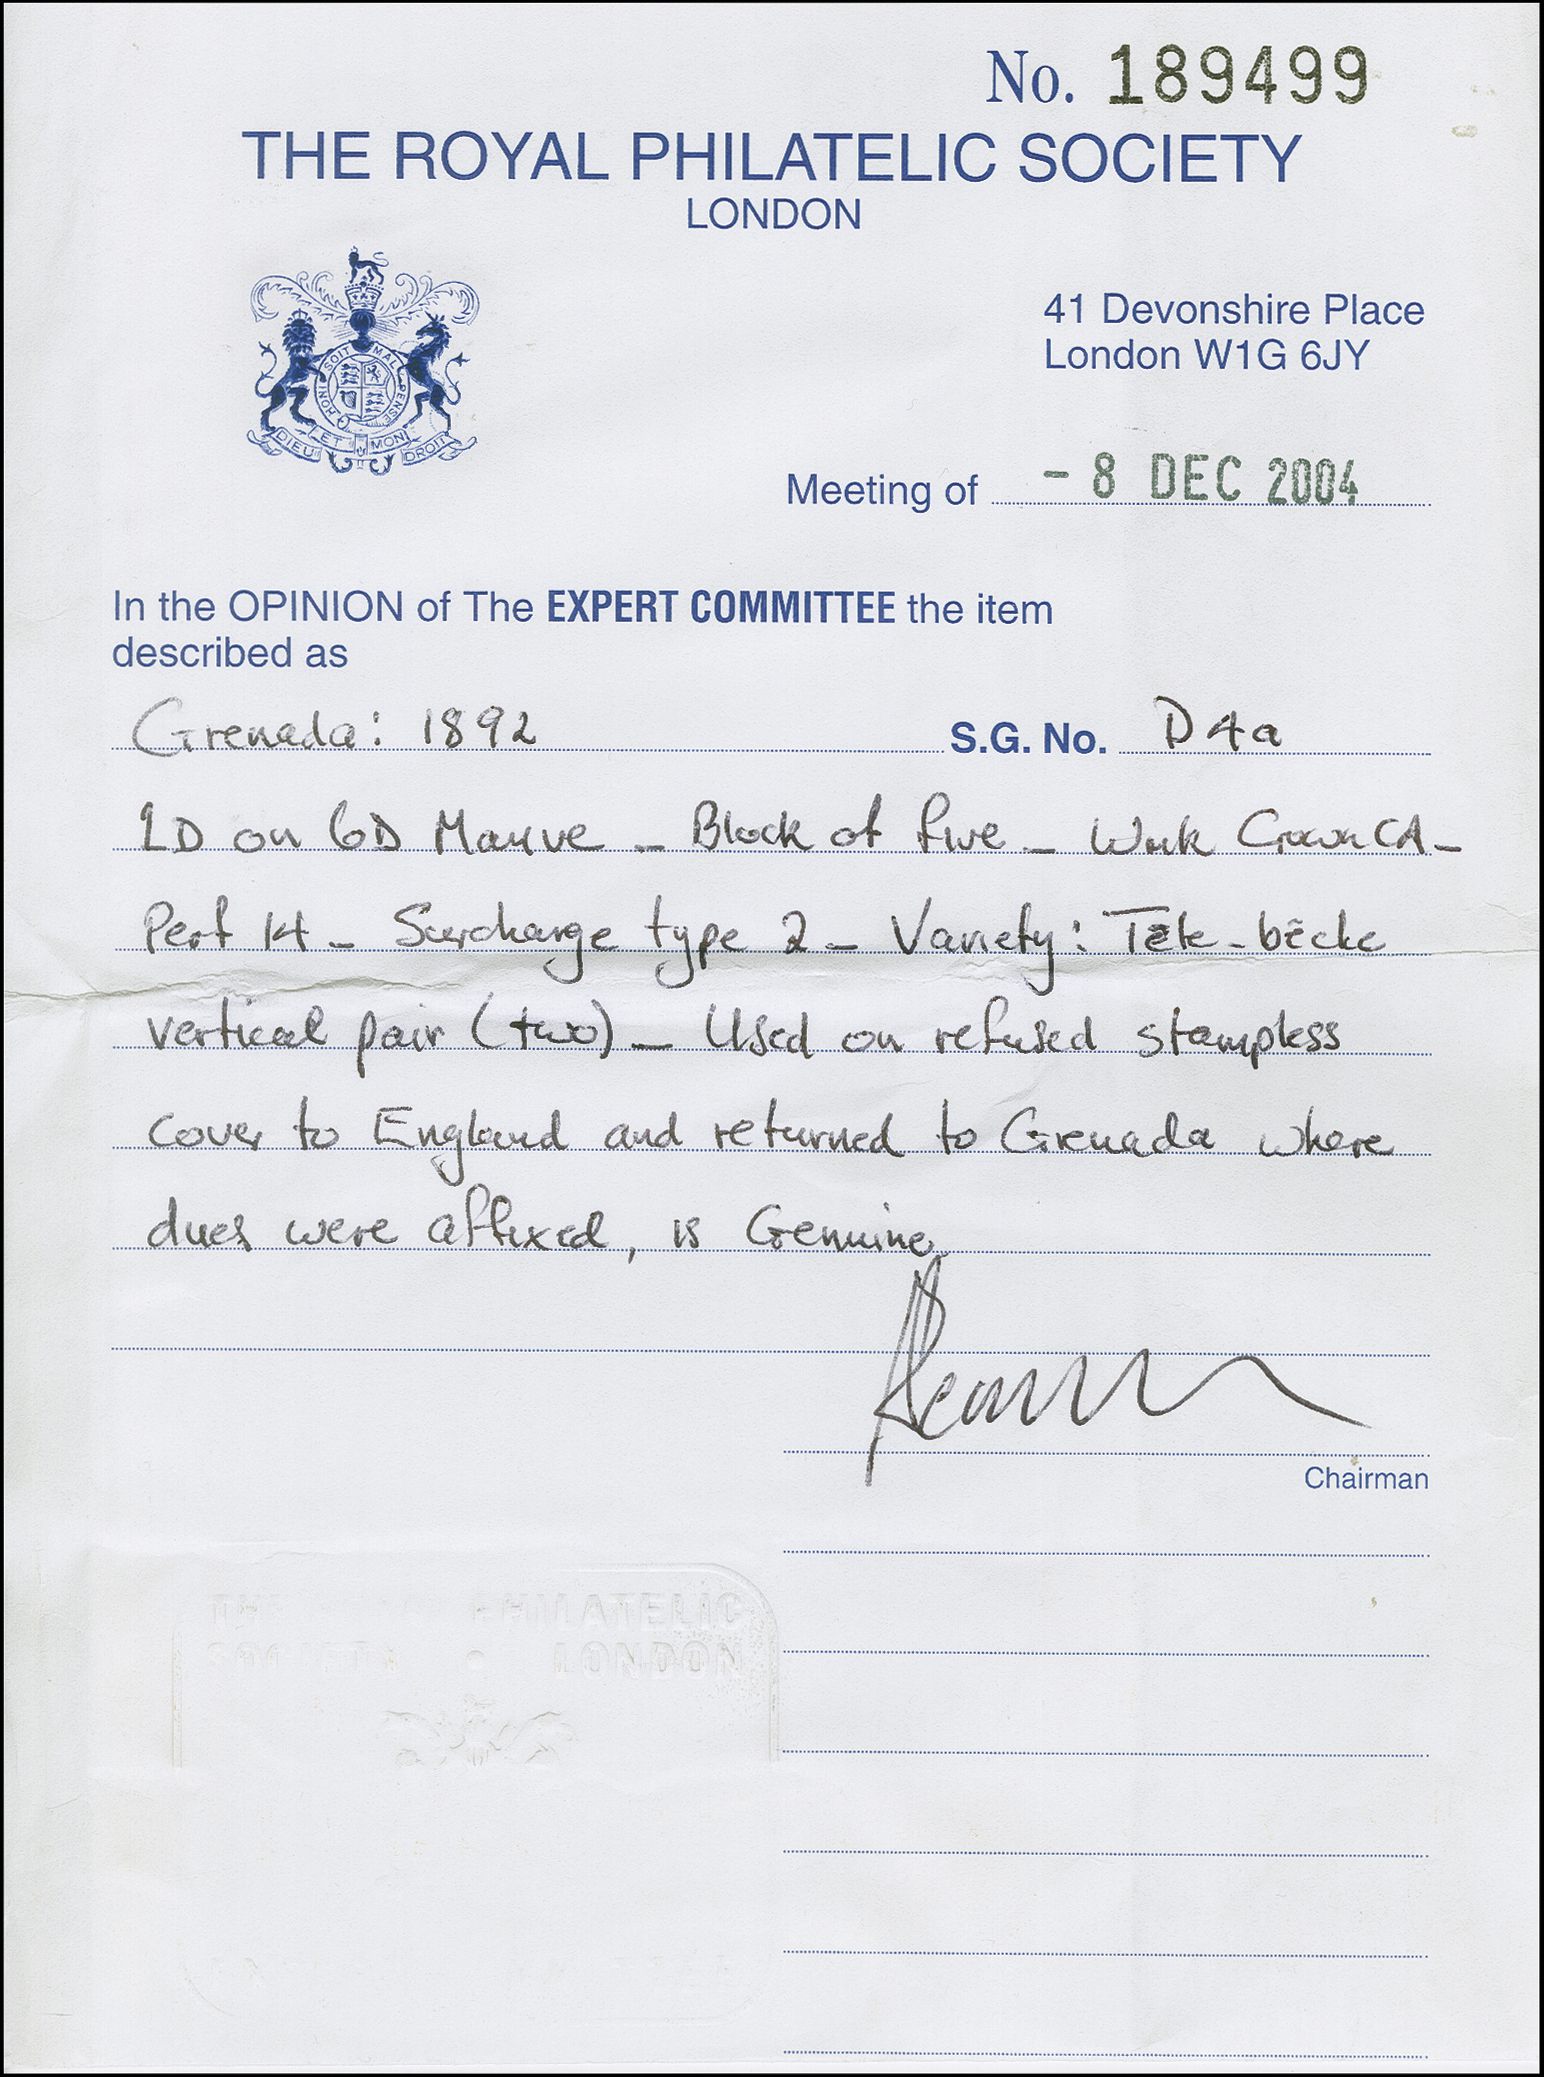 No. 189499
THE ROYAL PHILATELIC SOCIETY
LONDON
HONI SOIT MAL PENSE
DIEU ET MON DROIT
41 Devonshire Place
London W1G 6JY
Meeting of - 8 DEC 2004
In the OPINION of The EXPERT COMMITTEE the item
described as
Grenada: 1892 S.G. No. D4a
1D on 6D Mauve - Block of five - Wmk Crown CA -
Perf 14 - Surcharge type 2 - Variety: Tête-bêche
vertical pair (two) - Used on refused stampless
cover to England and returned to Grenada where
dues were affixed, is Genuine
Chairman
PHILATELIC
SOCIETY • LONDON